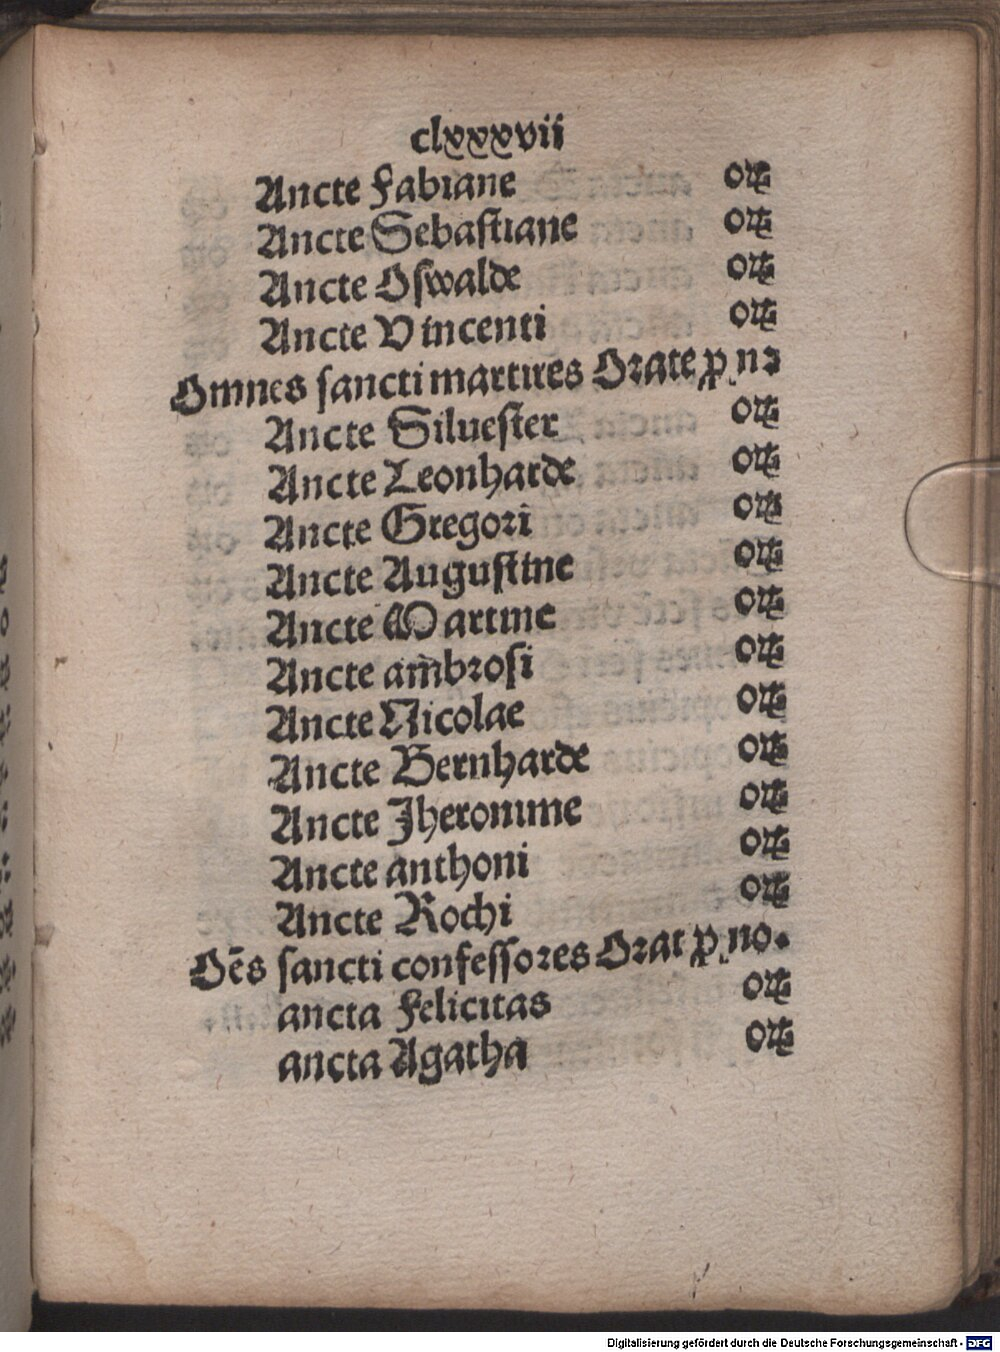 clxxxvii
Ancte Fabiane orꝫ
Ancte Sebastiane orꝫ
Ancte Oswalde orꝫ
Ancte Vincenti orꝫ
Omnes sancti martires Orate ꝓ nꝛ
Ancte Siluester orꝫ
Ancte Leonharde orꝫ
Ancte Gregori orꝫ
Ancte Augustine orꝫ
Ancte Martine orꝫ
Ancte am̄brosi orꝫ
Ancte Nicolae orꝫ
Ancte Bernharde orꝫ
Ancte Jheronime orꝫ
Ancte anthoni orꝫ
Ancte Rochi orꝫ
Oēs sancti confessores Orat ꝓ no.
ancta Felicitas orꝫ
ancta Agatha orꝫ
Digitalisierung gefördert durch die Deutsche Forschungsgemeinschaft - DFG